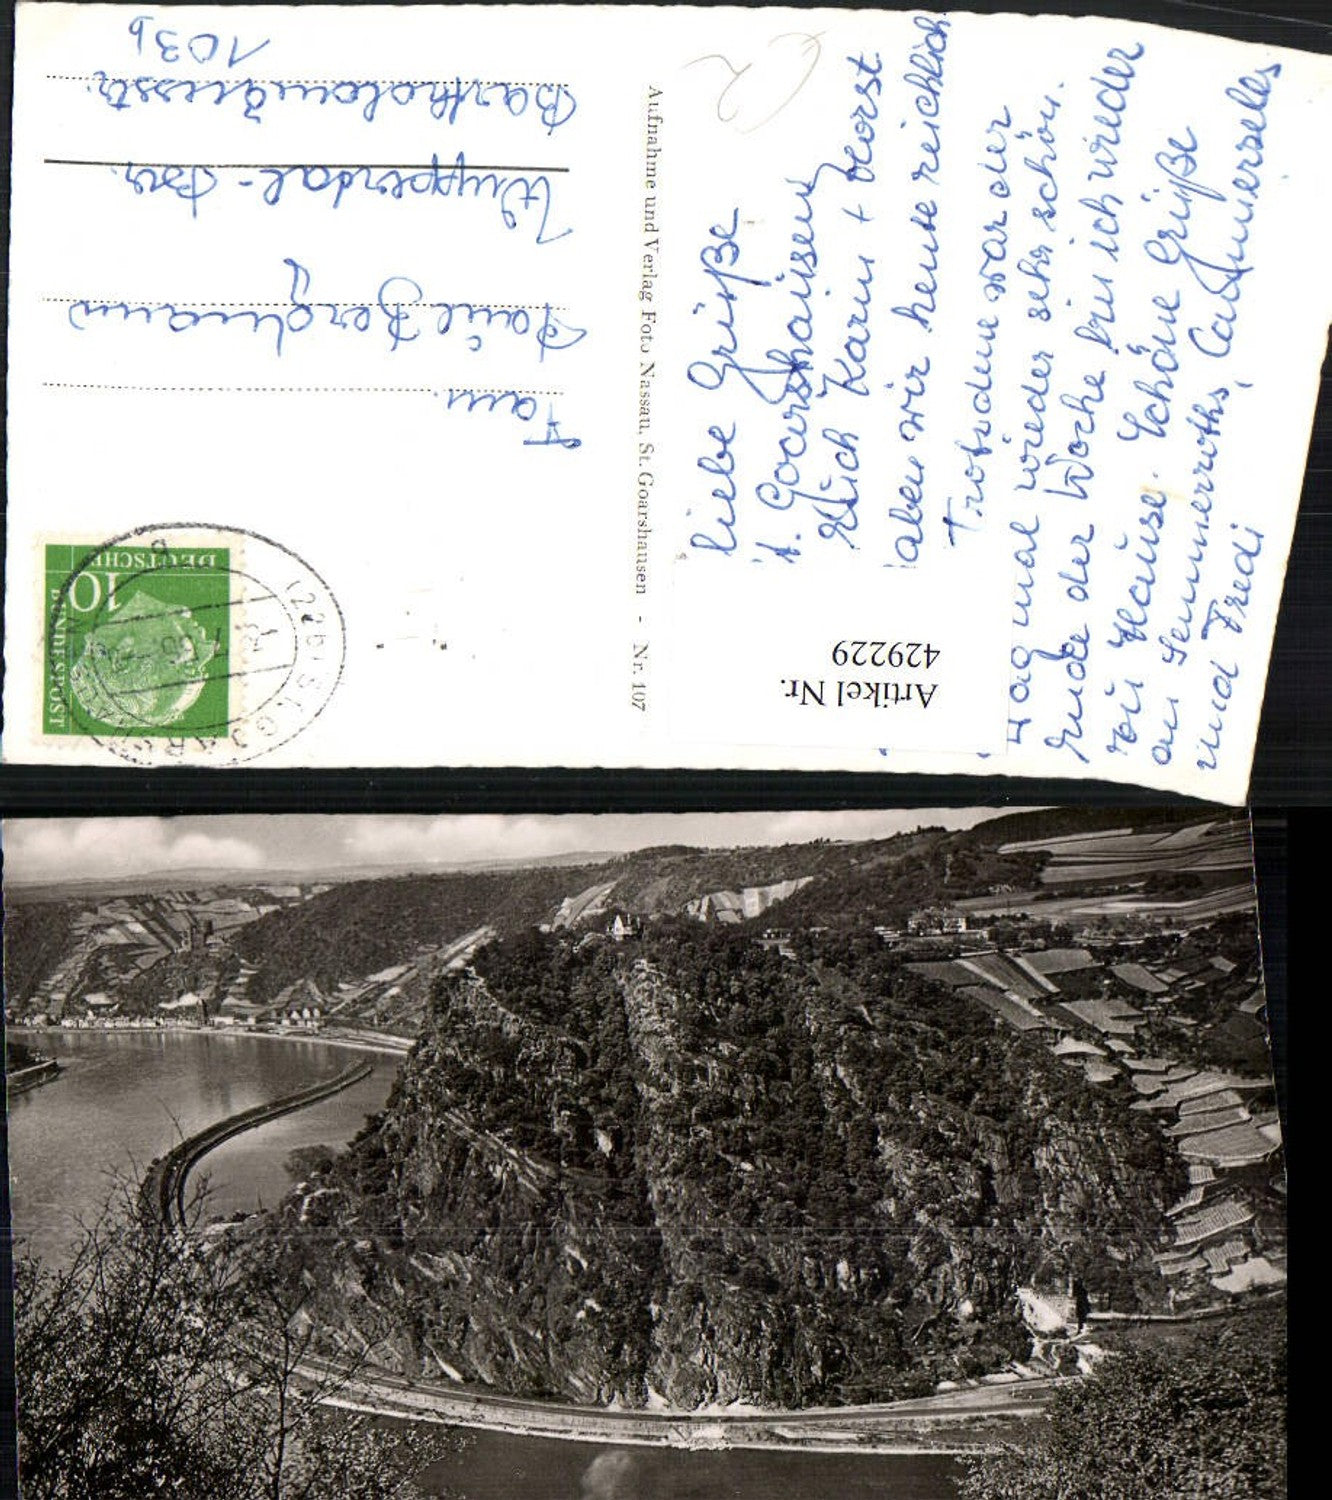 Liebe Grüße
St. Goarshausen
Euch Karin + Horst
haben wir heute reichlich.
Trotzdem war der
Tag mal wieder sehr schön.
Ende der Woche bin ich wieder
zu Hause. Schöne Grüße
an Semmerroths,
und Fredi
Aufnahme und Verlag Foto Nassau, St. Goarshausen - Nr. 107
Artikel Nr.
429229
DEUTSCHE
BUNDESPOST
10
(22b) ST. GOARSHAUSEN
a
Fam.
Paul Bergmann
Wuppertal - Bar.
Bartholomäusstr.
103b